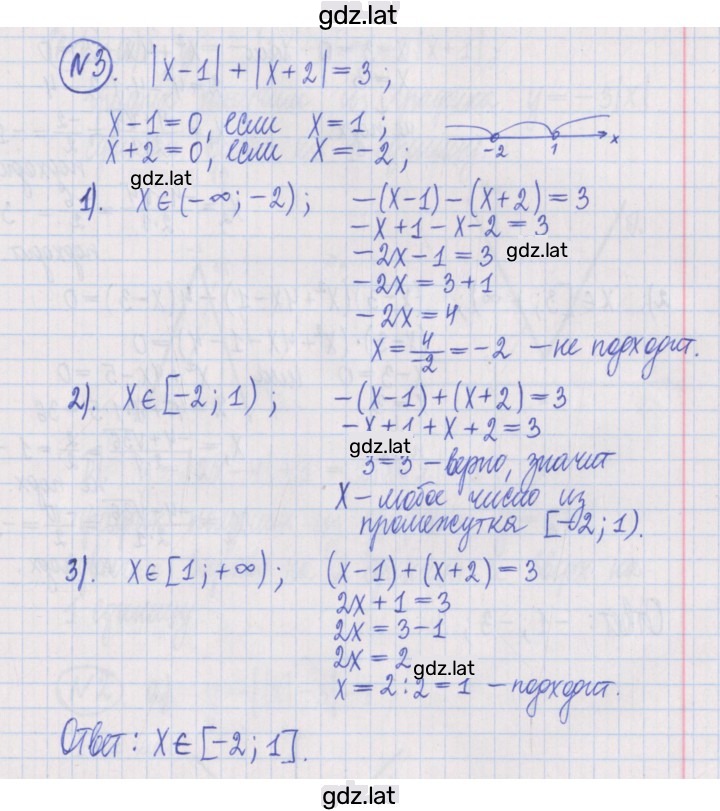 gdz.lat
№3. |x-1|+|x+2|=3;
x-1=0, если x=1;
x+2=0, если x=-2;
-2 1 x
gdz.lat
1). x∈(-∞;-2); -(x-1)-(x+2)=3
-x+1-x-2=3
-2x-1=3 gdz.lat
-2x=3+1
-2x=4
x=4/-2=-2 -не подходит.
2). x∈[-2;1); -(x-1)+(x+2)=3
-x+1+x+2=3
gdz.lat
3=3 -верно, значит
x-любое число из
промежутка [-2;1).
3). x∈[1;+∞); (x-1)+(x+2)=3
2x+1=3
2x=3-1
2x=2 gdz.lat
x=2:2=1 -подходит.
Ответ: x∈[-2;1].
gdz.lat